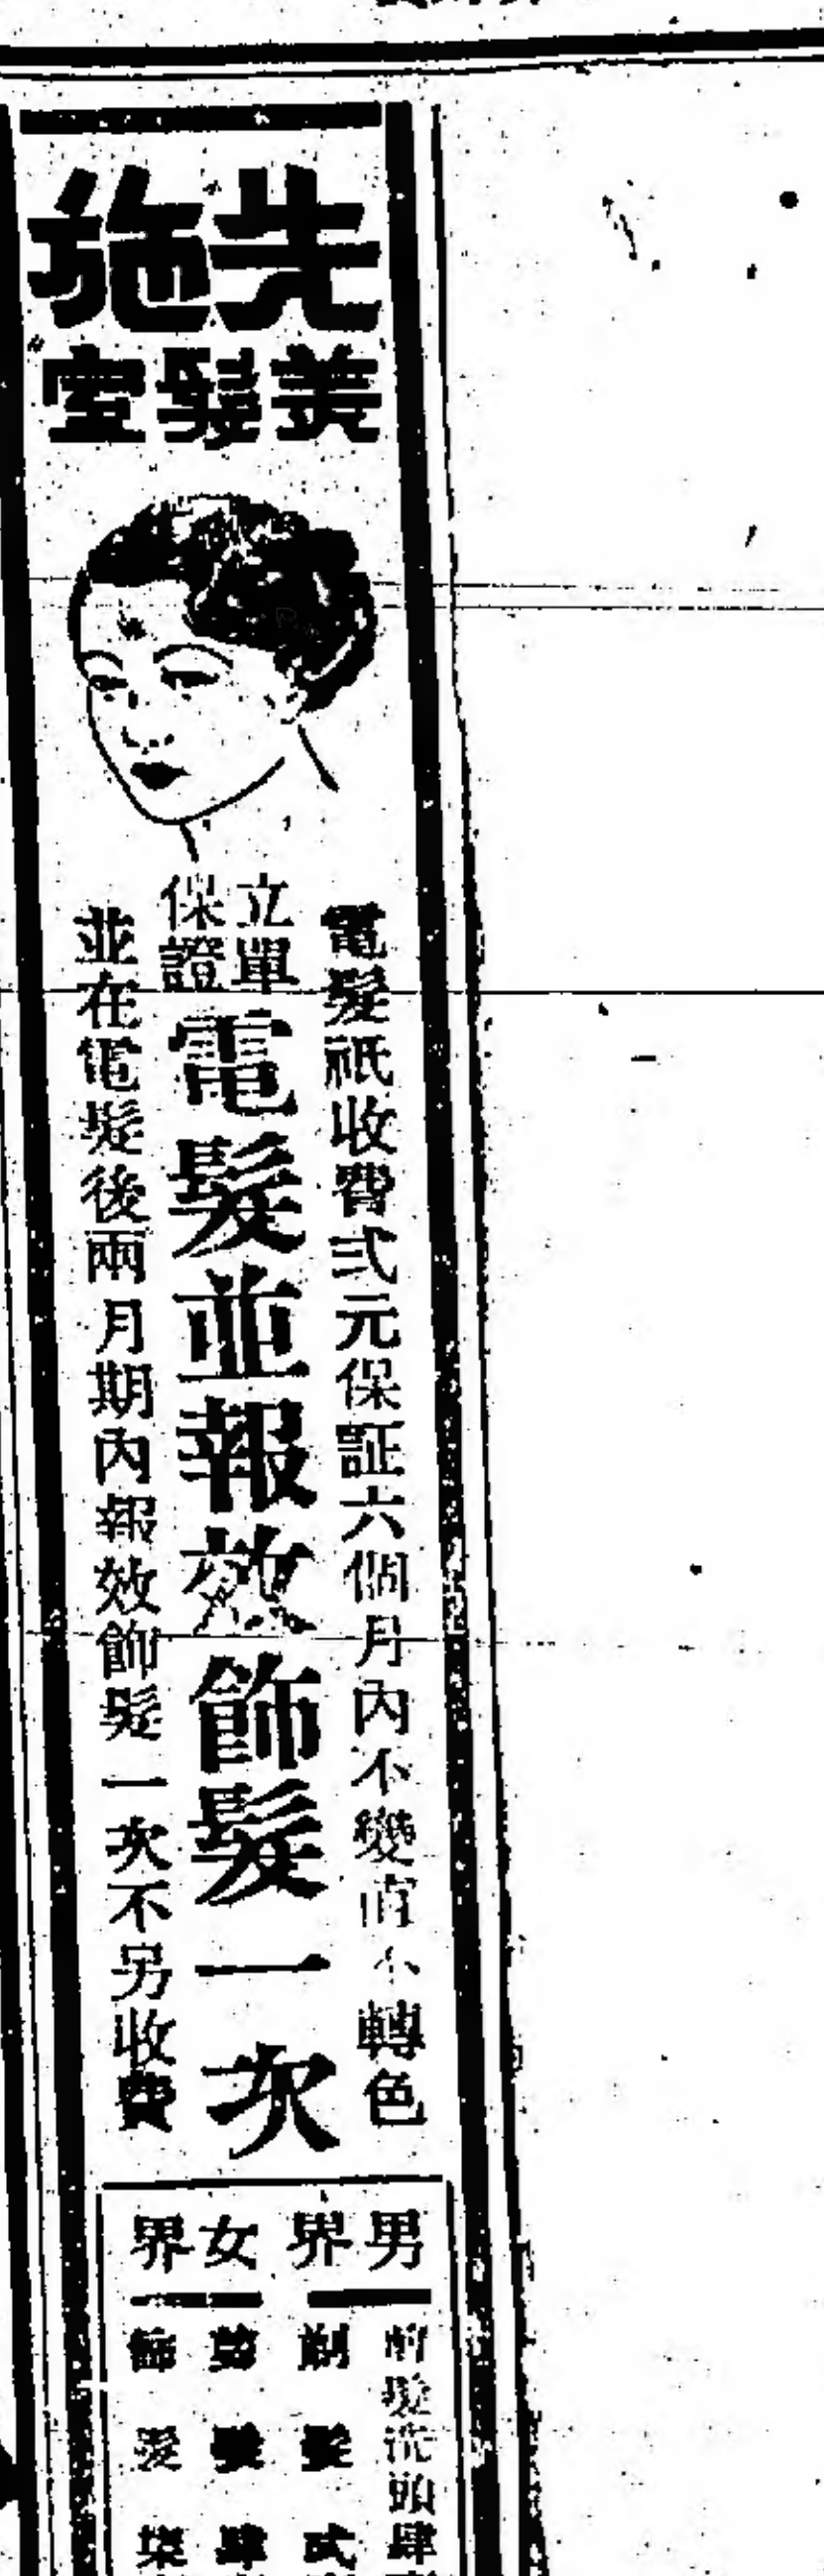 先施
美髮室
電髮祇收費弍元保証六個月內不變直不轉色
立單保證
電髮並報效飾髮一次
並在電髮後兩月期內報效飾髮一次不另收費
男界
女界
髮洗頭肆
髮弍
剪髮肆
飾髮柒